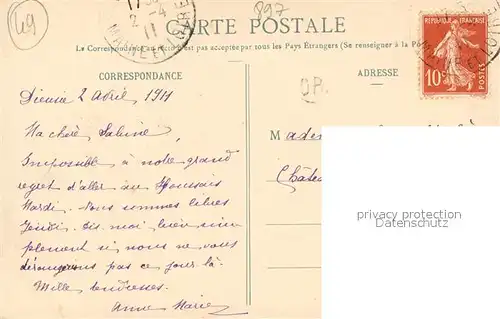 49
897
17
2 -4
11
MAINE-ET-LOIRE
CARTE POSTALE
La Correspondance au recto n'est pas acceptée par tous les Pays Étrangers (Se renseigner à la Po
CORRESPONDANCE
ADRESSE
RÉPUBLIQUE FRANÇAISE
10c
POSTES
2 Avril 1911
Ma chère Sabine
Impossible à notre grand
regret d'aller au Houssais
Mardi. Nous sommes libres
Jeudi. Dis moi bien sim
plement si nous ne vous
dérangeons pas ce jour là.
Mille tendresses.
Anne Marie
Madem
Châte
privacy protection
Datenschutz